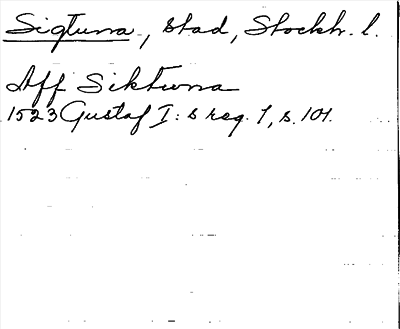 Sigtuna, stad, Stockh. l.
Aff Siktwna
1523 Gustaf I:s reg. 1, s. 101.